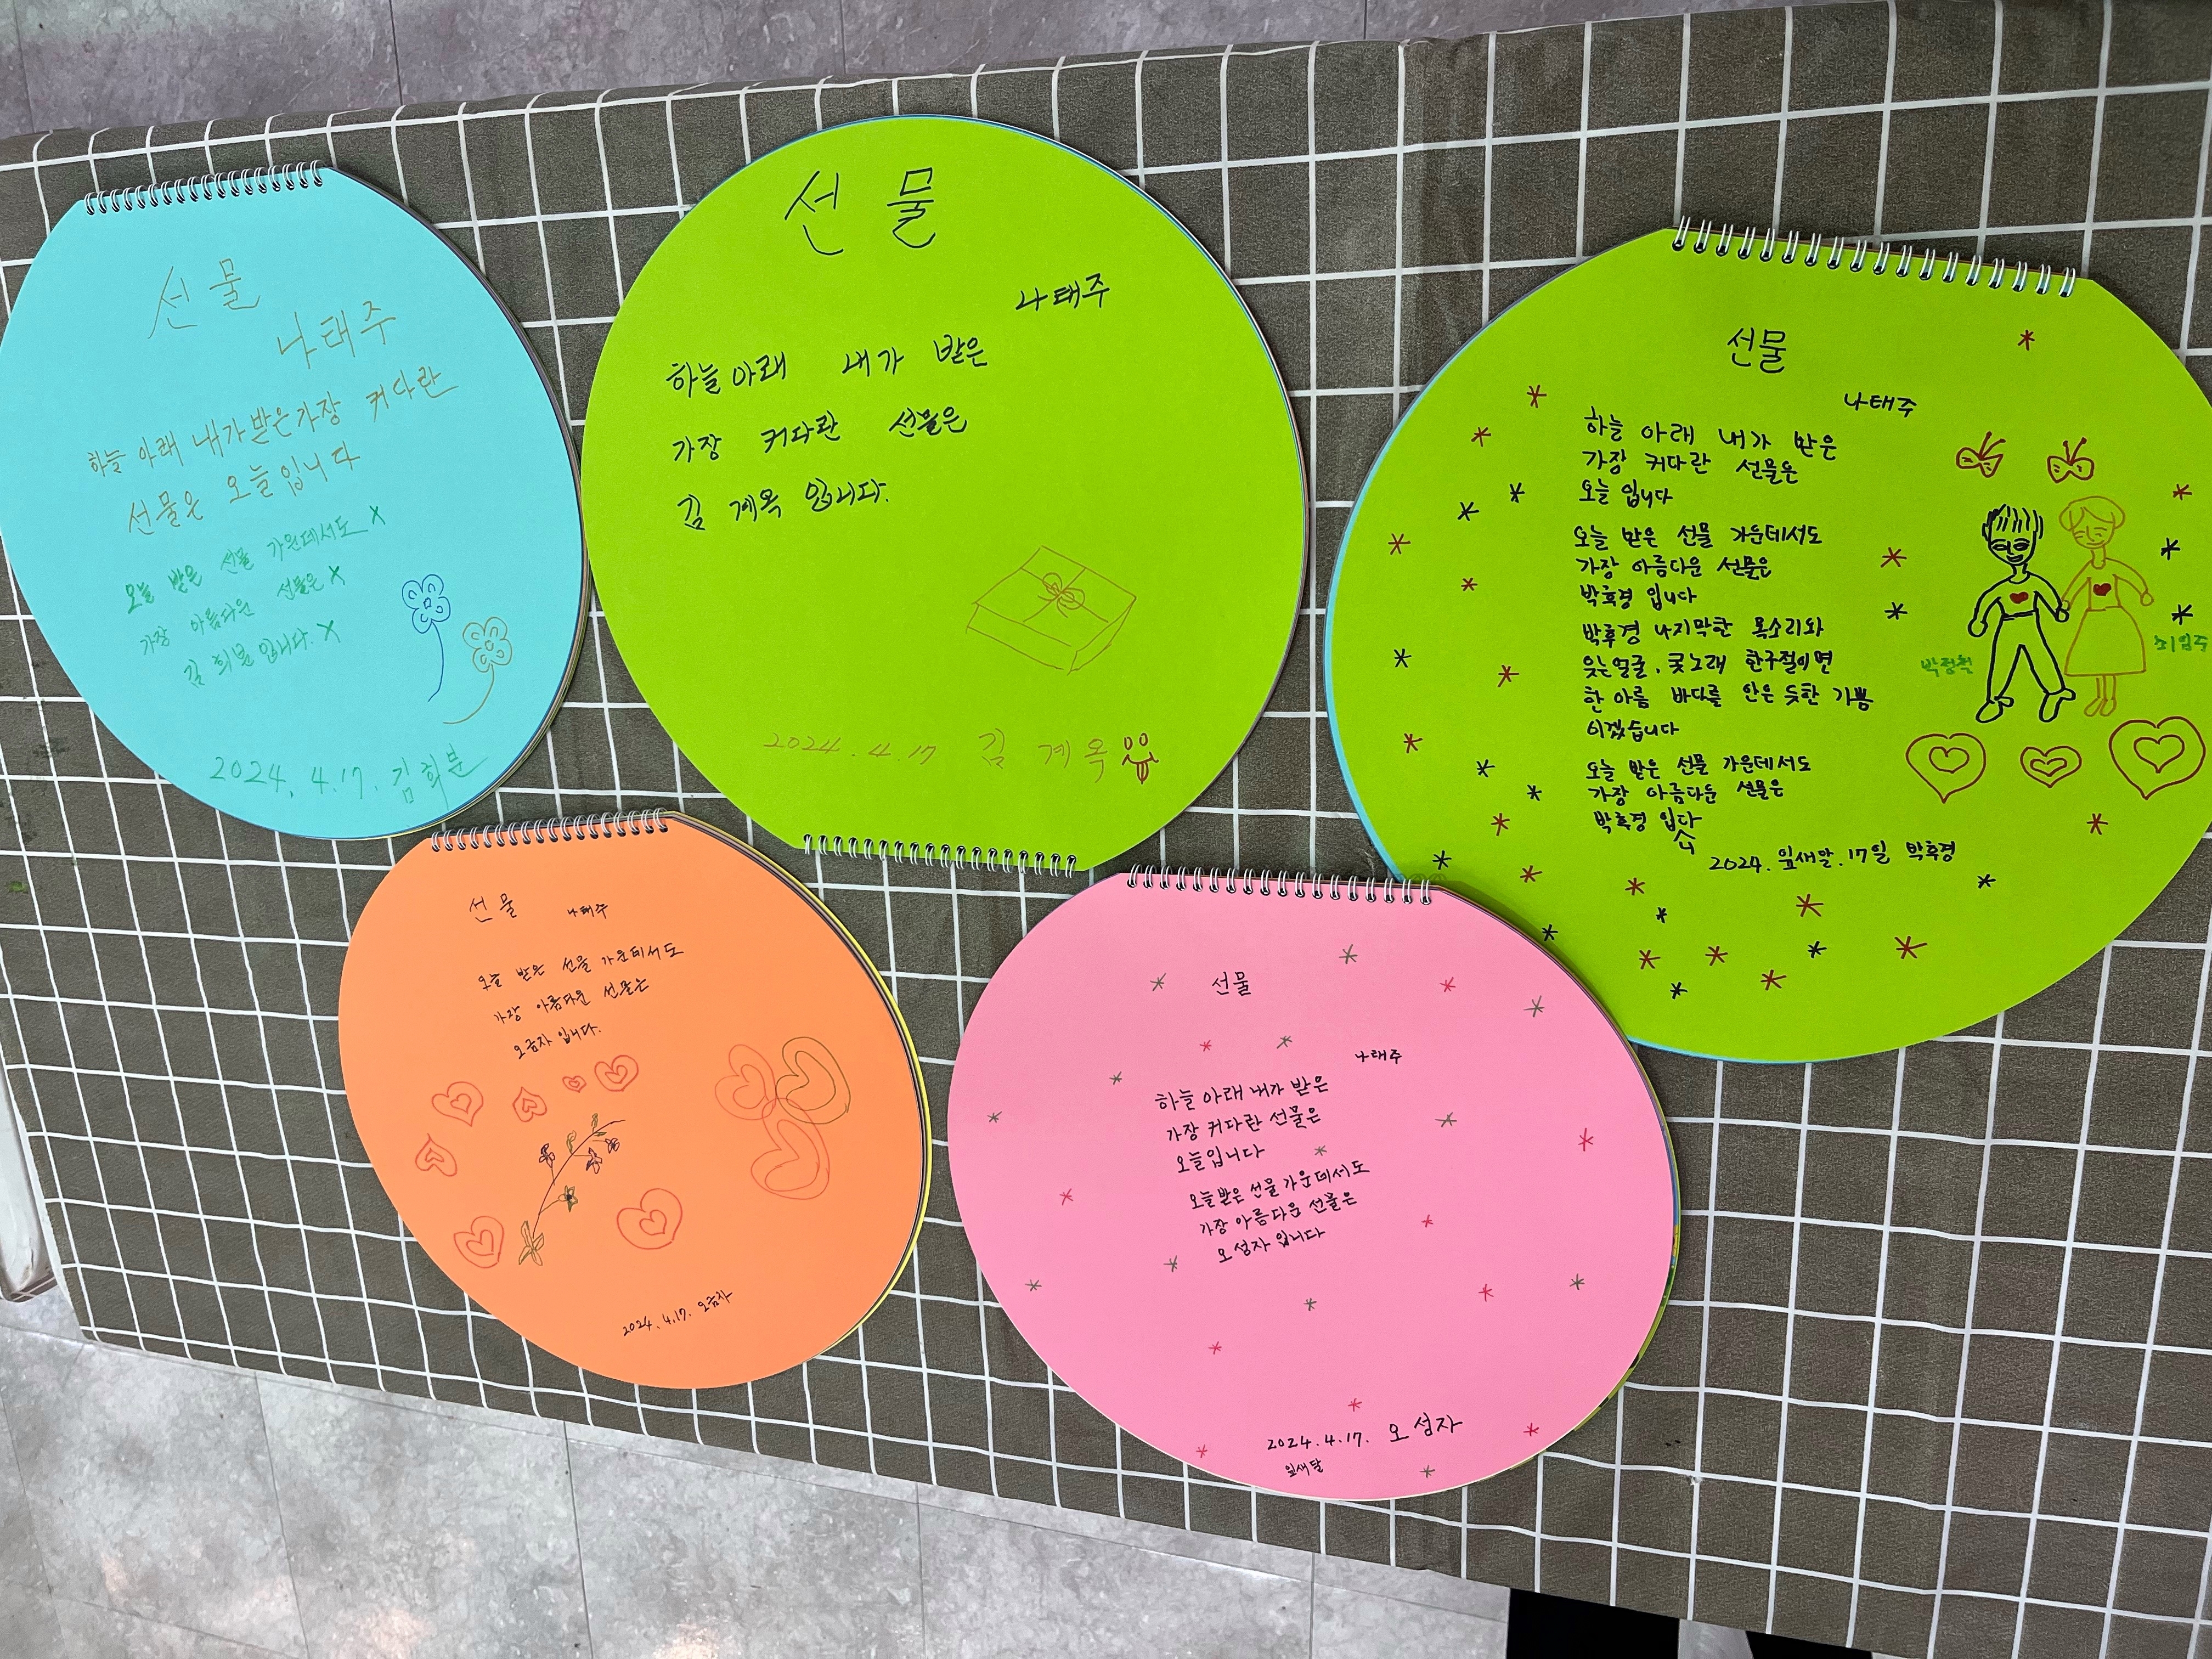 선물
나태주
하늘 아래 내가 받은 가장 커다란
선물은 오늘입니다
오늘 받은 선물 가운데서도 x
가장 아름다운 선물은 x
김 희분입니다. x
2024. 4.17. 김희분
선 물
나태주
하늘아래 내가 받은
가장 커다란 선물은
김 계옥 입니다.
2024.4.17 김 계옥
선물
나태주
하늘 아래 내가 받은
가장 커다란 선물은
오늘 입니다
오늘 받은 선물 가운데서도
가장 아름다운 선물은
박후경 입니다
박후경 나지막한 목소리와
웃는얼굴, 콧노래 한구절이면
한 아름 바다를 안은 듯한 기쁨
이겠습니다
오늘 받은 선물 가운데서도
가장 아름다운 선물은
박후경 입다
니
2024. 잎새달. 17일 박후경
박정혁
선물 나태주
오늘 받은 선물 가운데서도
가장 아름다운 선물은
오금자 입니다.
2024.4.17. 오금자
선물
나태주
하늘 아래 내가 받은
가장 커다란 선물은
오늘입니다
오늘받은 선물 가운데서도
가장 아름다운 선물은
오성자 입니다
2024.4.17. 오성자
잎새달